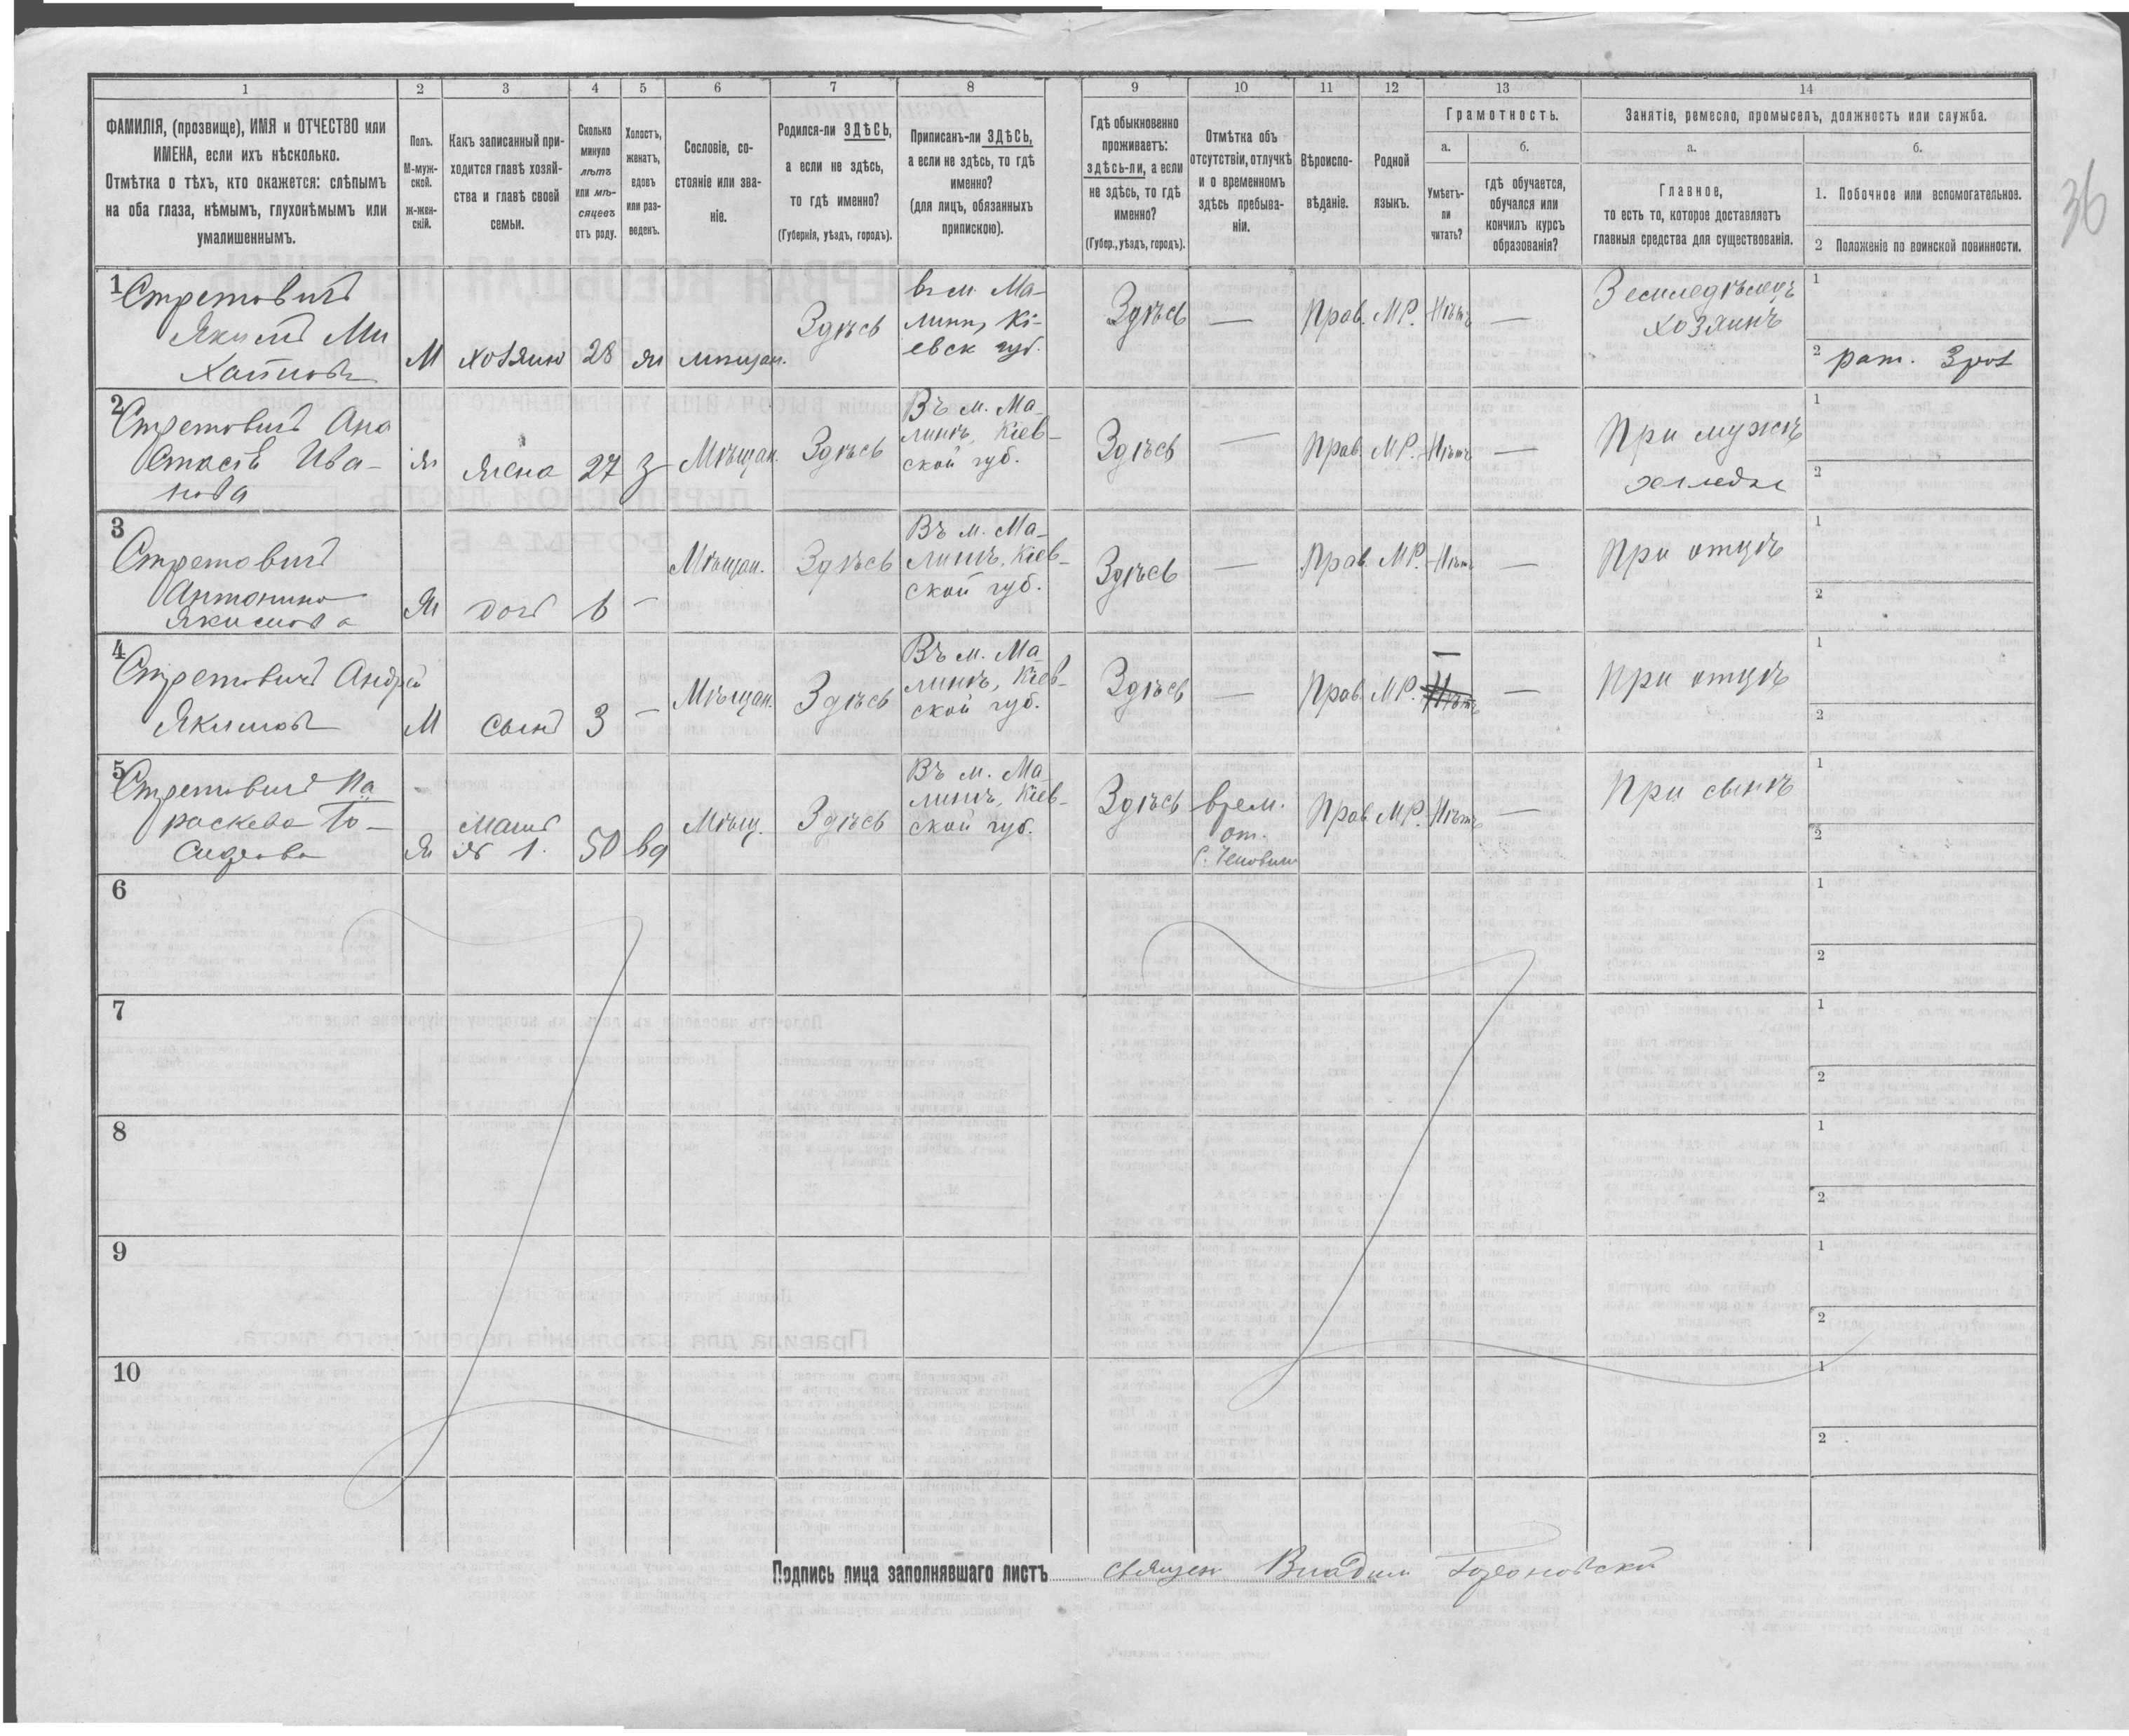 36
1 2 3 4 5 6 7 8 9 10 11 12 13 14
ФАМИЛІЯ, (прозвище), ИМЯ и ОТЧЕСТВО или
ИМЕНА, если ихъ нѣсколько.
Отмѣтка о тѣхъ, кто окажется: слѣпымъ
на оба глаза, нѣмымъ, глухонѣмымъ или
умалишеннымъ.
Полъ.
М-муж-
ской.
Ж-жен-
скій.
Какъ записанный при-
ходится главѣ хозяй-
ства и главѣ своей
семьи.
Сколько
минуло
лѣтъ
или мѣ-
сяцевъ
отъ роду.
Холостъ,
женатъ,
вдовъ
или раз-
веденъ.
Сословіе, со-
стояніе или зва-
ніе.
Родился-ли ЗДѢСЬ,
а если не здѣсь,
то гдѣ именно?
(Губернія, уѣздъ, городъ).
Приписанъ-ли ЗДѢСЬ,
а если не здѣсь, то гдѣ
именно?
(для лицъ, обязанныхъ
припискою).
Гдѣ обыкновенно
проживаетъ:
здѣсь-ли, а если
не здѣсь, то гдѣ
именно?
(Губер., уѣздъ, городъ).
Отмѣтка объ
отсутствіи, отлучкѣ
и о временномъ
здѣсь пребыва-
ніи.
Вѣроиспо-
вѣданіе.
Родной
языкъ.
Грамотность.
а.
Умѣетъ-
ли
читать?
б.
гдѣ обучается,
обучался или
кончилъ курсъ
образованія?
Занятіе, ремесло, промыселъ, должность или служба.
а.
Главное,
то есть то, которое доставляетъ
главныя средства для существованія.
б.
1. Побочное или вспомогательное.
2 Положеніе по воинской повинности.
1
Стретовичъ
Якимъ Ми
хайловъ
М
хозяинъ
28
ж
мѣщан.
Здѣсь
въ м. Ма-
линѣ Кі-
евск губ.
Здѣсь
—
Прав.
МР.
Нѣтъ
—
Земледѣлецъ
хозяинъ
1
2 рат. 3 роз
2
Стретовичъ Ана
стасія Ива-
нова
ж
жена
27
з
Мѣщан.
Здѣсь
Въ м. Ма-
линѣ, Кіев-
ской губ.
Здѣсь
—
Прав.
МР.
Нѣтъ
—
При мужѣ
1
2
3
Стретовичъ
Антонина
Якимова
ж
дочь
6
—
Мѣщан.
Здѣсь
Въ м. Ма-
линѣ, Кіев-
ской губ.
Здѣсь
—
Прав.
МР.
Нѣтъ
—
При отцѣ
1
2
4
Стретовичъ Андрей
Якимовъ
М
сынъ
3
—
Мѣщан.
Здѣсь
Въ м. Ма-
линѣ, Кіев-
ской губ.
Здѣсь
—
Прав.
МР.
—
Нѣтъ
—
При отцѣ
1
2
5
Стретовичъ Па
раскева То-
ж
мать
№ 1.
50
вд
Мѣщ.
Здѣсь
Въ м. Ма-
линѣ, Кіев-
ской губ.
Здѣсь
врем.
от.
Прав
МР.
Нѣтъ
—
При сынѣ
1
2
6
1
2
7
1
2
8
1
2
9
1
2
10
1
2
Подпись лица заполнявшаго листъ священ Владим